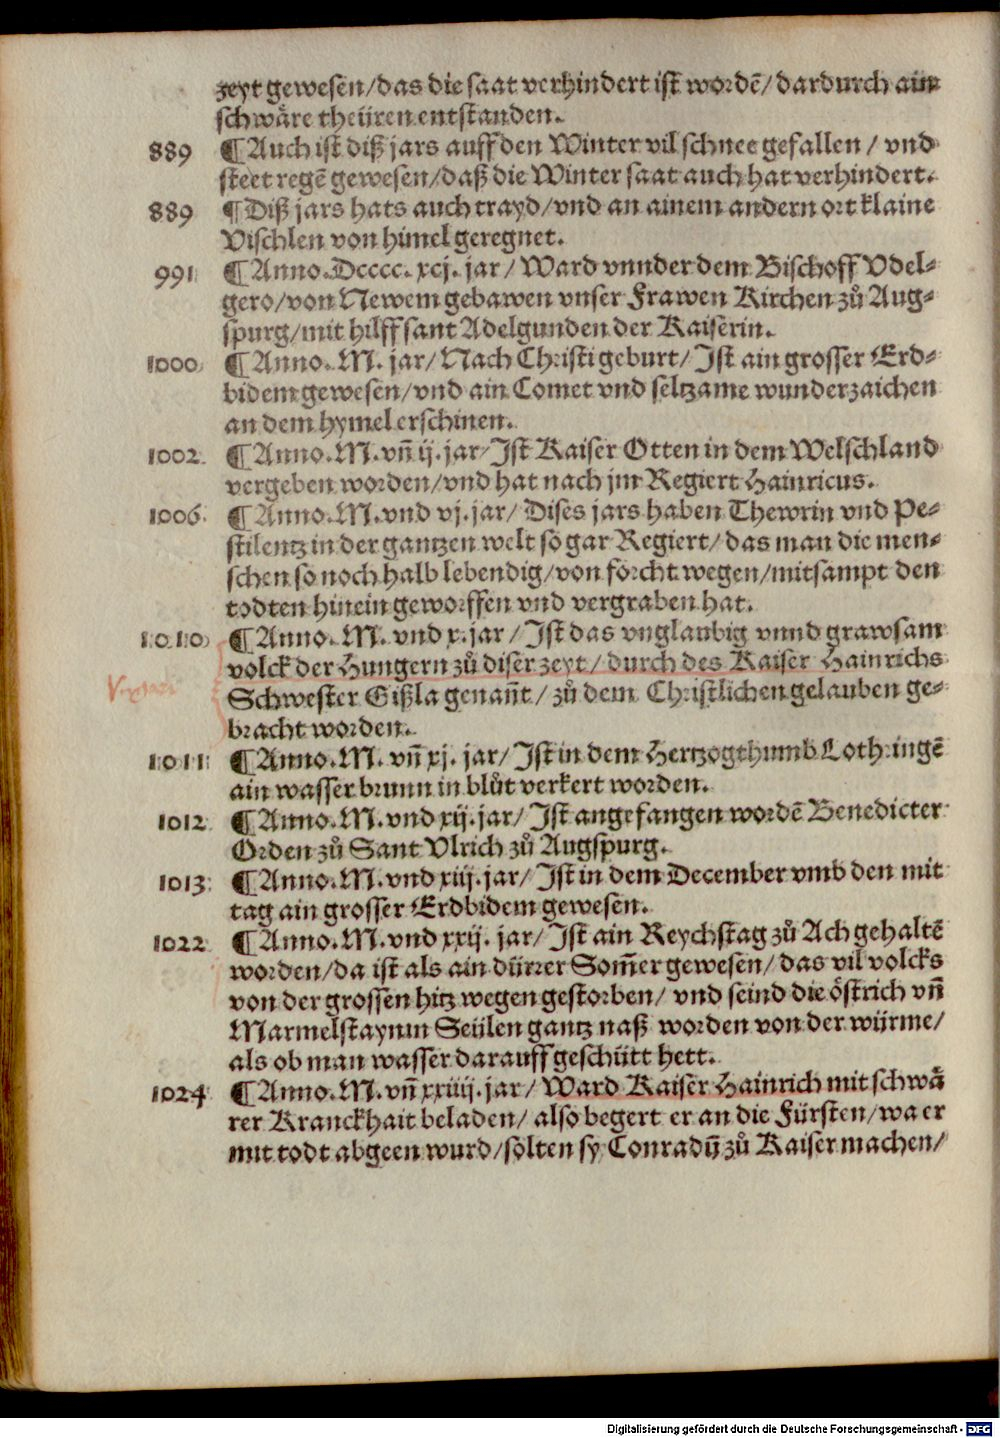 zeyt gewesen/das die saat verhindert ist wordē/dardurch ain
schwäre theüren entstanden.
889 ¶Auch ist diß jars auff den Winter vil schnee gefallen/ vnd
steet regē gewesen/daß die Winter saat auch hat verhindert.
889 ¶Diß jars hats auch trayd/vnd an ainem andern ort klaine
Vischlen von himel geregnet.
991 ¶Anno. Dcccc. xcj. jar/ Ward vnnder dem Bischoff Vdel⸗
gero/von Newem gebawen vnser Frawen Kirchen zů Aug⸗
spurg/mit hilff sant Adelgunden der Kaiserin.
1000 ¶Anno. M. jar/ Nach Christi geburt/ Ist ain grosser Erd⸗
bidem gewesen/vnd ain Comet vnd seltzame wunderzaichen
an dem hymel erschinen.
1002 ¶Anno. M. vñ ij. jar/ Ist Kaiser Otten in dem Welschland
vergeben worden/vnd hat nach jm Regiert Hainricus.
1006 ¶Anno. M. vnd vj. jar/ Dises jars haben Thewrin vnd Pe⸗
stilentz in der gantzen welt so gar Regiert/das man die men⸗
schen so noch halb lebendig/von forcht wegen/mitsampt den
todten hinein geworffen vnd vergraben hat.
1010 ¶Anno. M. vnd x. jar/ Ist das vnglaubig vnnd grawsam
volck der Hungern zů diser zeyt/ durch des Kaiser Hainrichs
Schwester Gißla genañt/ zů dem Christlichen gelauben ge⸗
bracht worden.
1011 ¶Anno. M. vñ xj. jar/ Ist in dem Hertzogthumb Lothringē
ain wasser brunn in blůt verkert worden.
1012 ¶Anno. M. vnd xij. jar/ Ist angefangen wordē Benedicter
Orden zů Sant Vlrich zů Augspurg.
1013 ¶Anno. M. vnd xiij. jar/ Ist in dem December vmb den mit
tag ain grosser Erdbidem gewesen.
1022 ¶Anno. M. vnd xxij. jar/ Ist ain Reychstag zů Ach gehaltē
worden/da ist als ain dürrer Som̃er gewesen/das vil volcks
von der grossen hitz wegen gestorben/ vnd seind die östrich vñ
Marmelstaynin Seülen gantz naß worden von der würme/
als ob man wasser darauff geschütt hett.
1024 ¶Anno. M. vñ xxiiij. jar/ Ward Kaiser Hainrich mit schwä
rer Kranckhait beladen/ also begert er an die Fürsten/wa er
mit todt abgeen wurd/solten sy Conradū zů Kaiser machen/
Digitalisierung gefördert durch die Deutsche Forschungsgemeinschaft - DFG